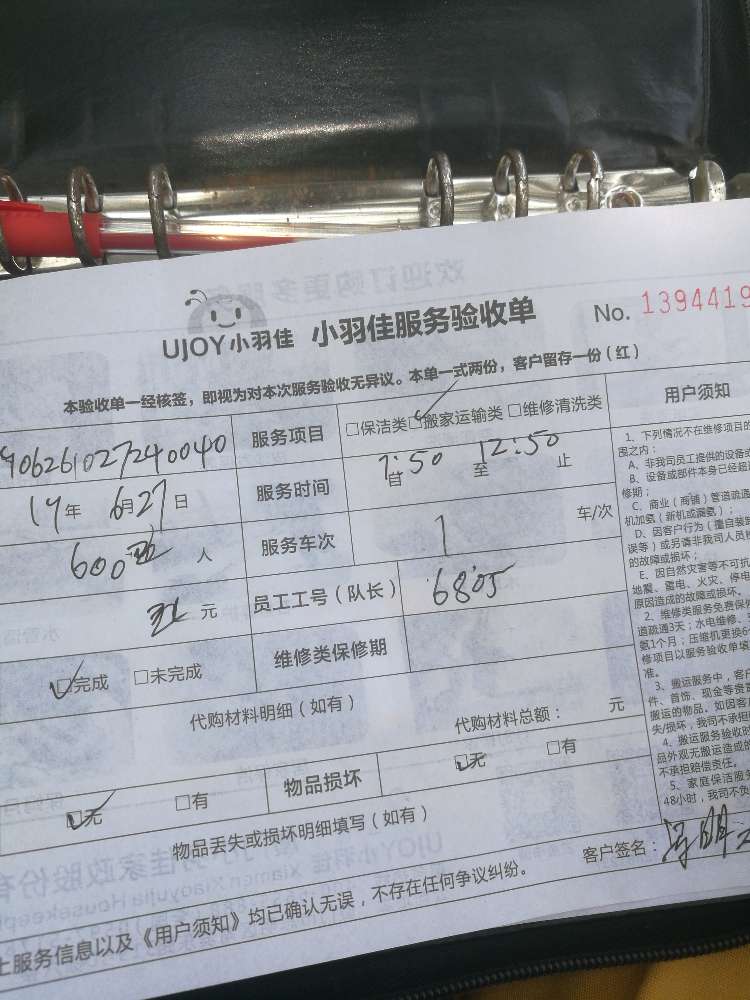 UJOY小羽佳 小羽佳服务验收单 No. 1394419
本验收单一经核签，即视为对本次服务验收无异议。本单一式两份，客户留存一份（红）
906261027240040 服务项目 □保洁类 □搬家运输类 □维修清洗类 用户须知
19年 6月27日 服务时间 自 7:50 至 12:50 止
600 人 服务车次 1 车/次
元 员工工号（队长） 6805
□完成 □未完成 维修类保修期
代购材料明细（如有）
代购材料总额： 元
□无 □有 物品损坏 □无 □有
物品丢失或损坏明细填写（如有）
客户签名：
上服务信息以及《用户须知》均已确认无误，不存在任何争议纠纷。
1、下列情况不在维修项目的
围之内：
A、非我司员工提供的设备或
B、设备或部件本身已经超
修期；
C、商业（商铺）管道疏通
机加氨（新机或漏氨）；
D、因客户行为（擅自装
误等）或另请非我司人员
的故障或损坏；
E、因自然灾害等不可抗
地震、雷电、火灾、停电
原因造成的故障或损坏。
2、维修类服务免费保
道疏通3天；水电维修、
氨1个月；压缩机更换6
修项目以服务验收单填
准。
3、搬运服务中，客户
件、首饰、现金等贵
搬运的物品，如因客
失/损坏，我司不承担
4、搬运服务验收时
品外观无搬运造成的
不承担赔偿责任。
5、家庭保洁服务
48小时，我司不负